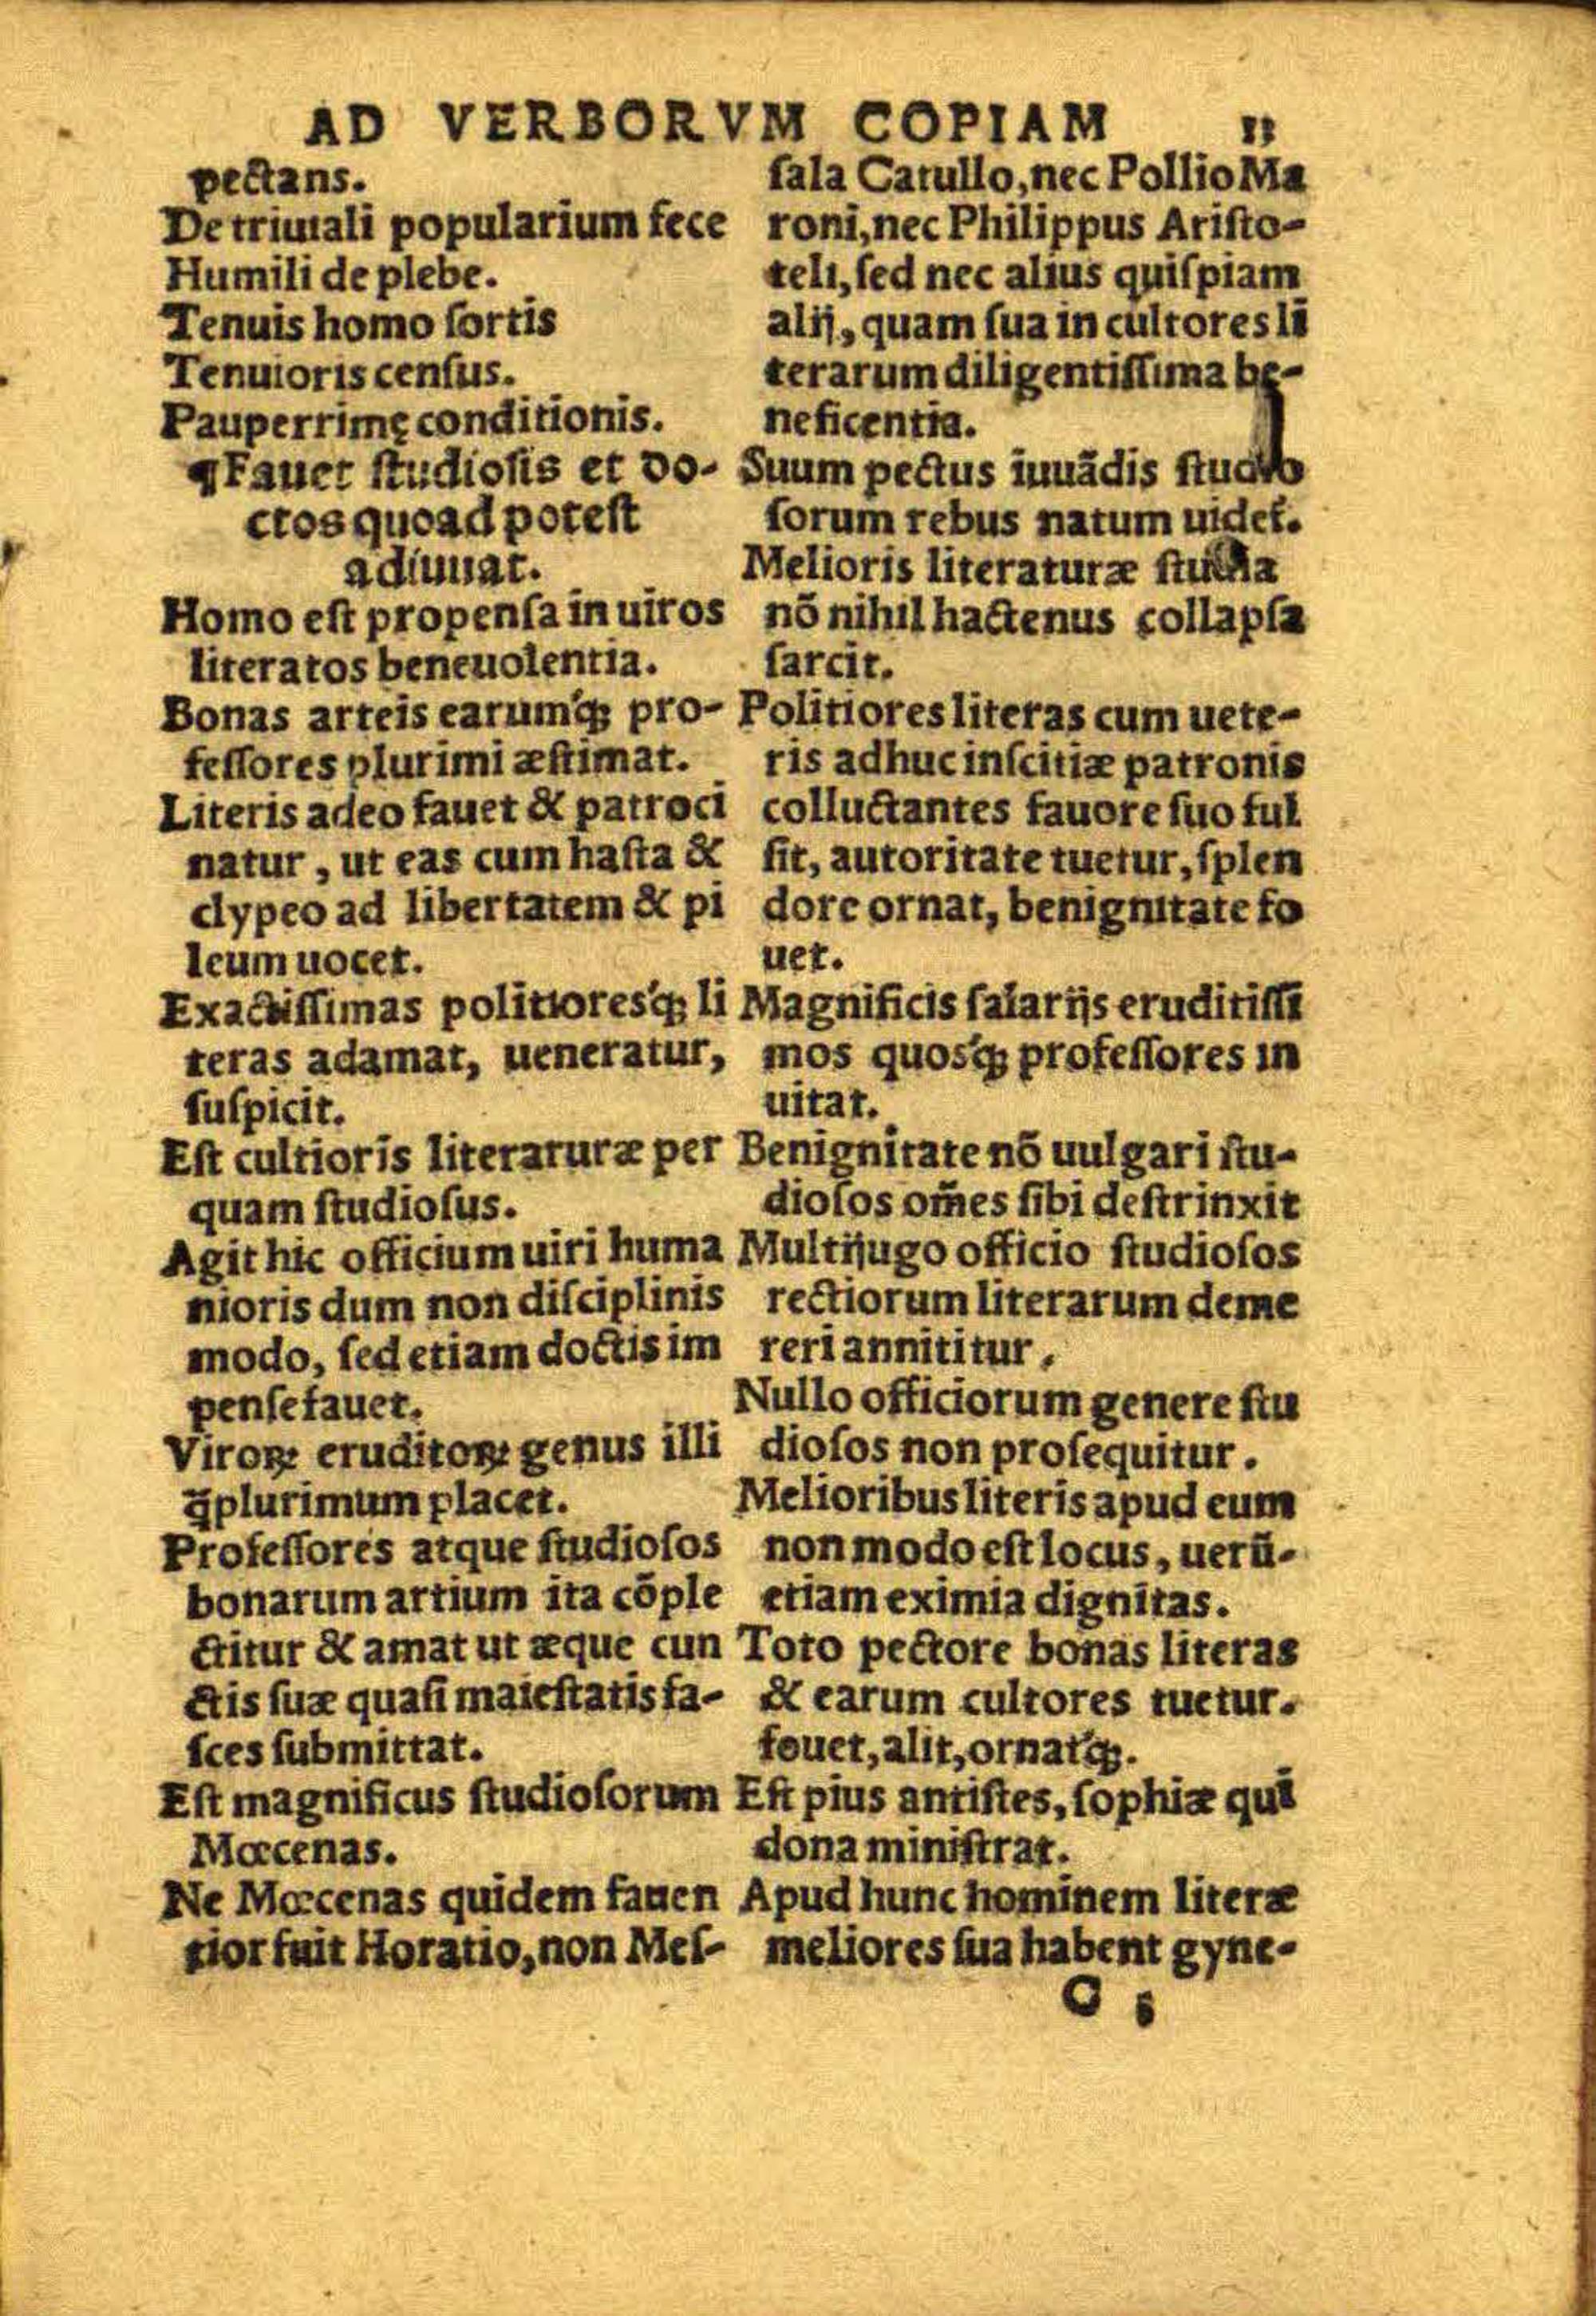 AD VERBORVM COPIAM 11
pectans.
De triuiali popularium fece
Humili de plebe.
Tenuis homo ſortis
Tenuioris cenſus.
Pauperrimę conditionis.
¶Fauet ſtudioſis et do-
ctos quoad poteſt
adiuuat.
Homo eſt propenſa in uiros
literatos beneuolentia.
Bonas arteis earumq́ꝫ pro-
feſſores plurimi æſtimat.
Literis adeo fauet & patroci
natur, ut eas cum haſta &
clypeo ad libertatem & pi
leum uocet.
Exactiſſimas politioresq́ꝫ li
teras adamat, ueneratur,
ſuſpicit.
Eſt cultioris literaturæ per
quam ſtudioſus.
Agit hic officium uiri huma
nioris dum non diſciplinis
modo, ſed etiam doctis im
penſe fauet.
Viroꝝ eruditoꝝ genus illi
q̃plurimum placet.
Profeſſores atque ſtudioſos
bonarum artium ita cõple
ctitur & amat ut æque cun
ctis ſuæ quaſi maieſtatis fa-
ſces ſubmittat.
Eſt magnificus ſtudioſorum
Mœcenas.
Ne Mœcenas quidem fauen
tior fuit Horatio, non Meſ-
ſala Catullo, nec Pollio Ma
roni, nec Philippus Ariſto-
teli, ſed nec alius quiſpiam
alij, quam ſua in cultores li
terarum diligentiſſima be-
neficentia.
Suum pectus iuuãdis ſtudio
ſorum rebus natum uidet̃.
Melioris literaturæ ſtudia
nõ nihil hactenus collapſa
ſarcit.
Politiores literas cum uete-
ris adhuc inſcitiæ patronis
colluctantes fauore ſuo ful
ſit, autoritate tuetur, ſplen
dore ornat, benignitate fo
uet.
Magnificis ſalarijs eruditiſſi
mos quosq́ꝫ profeſſores in
uitat.
Benignitate nõ uulgari ſtu-
dioſos om̃es ſibi deſtrinxit
Multijugo officio ſtudioſos
rectiorum literarum deme
reri annititur.
Nullo officiorum genere ſtu
dioſos non proſequitur.
Melioribus literis apud eum
non modo eſt locus, uerũ-
etiam eximia dignitas.
Toto pectore bonas literas
& earum cultores tuetur.
fouet, alit, ornatq́ꝫ.
Eſt pius antiſtes, ſophiæ qui
dona miniſtrat.
Apud hunc hominem literæ
meliores ſua habent gyne-
C 5